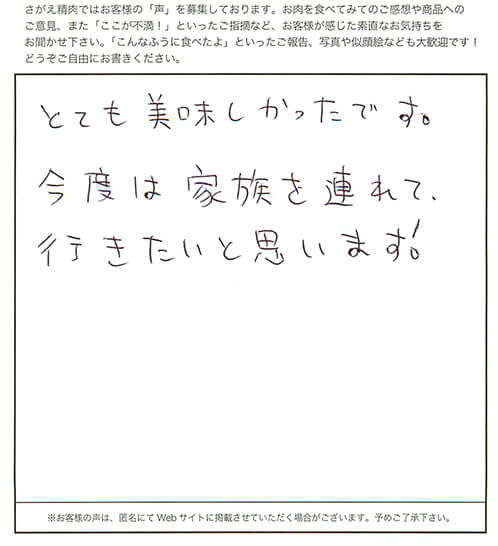 さがえ精肉ではお客様の「声」を募集しております。お肉を食べてみてのご感想や商品への
ご意見、また「ここが不満！」といったご指摘など、お客様が感じた素直なお気持ちを
お聞かせ下さい。「こんなふうに食べたよ」といったご報告、写真や似顔絵なども大歓迎です！
どうぞご自由にお書きください。
とても美味しかったです。
今度は家族を連れて、
行きたいと思います！
※お客様の声は、匿名にてWebサイトに掲載させていただく場合がございます。予めご了承下さい。